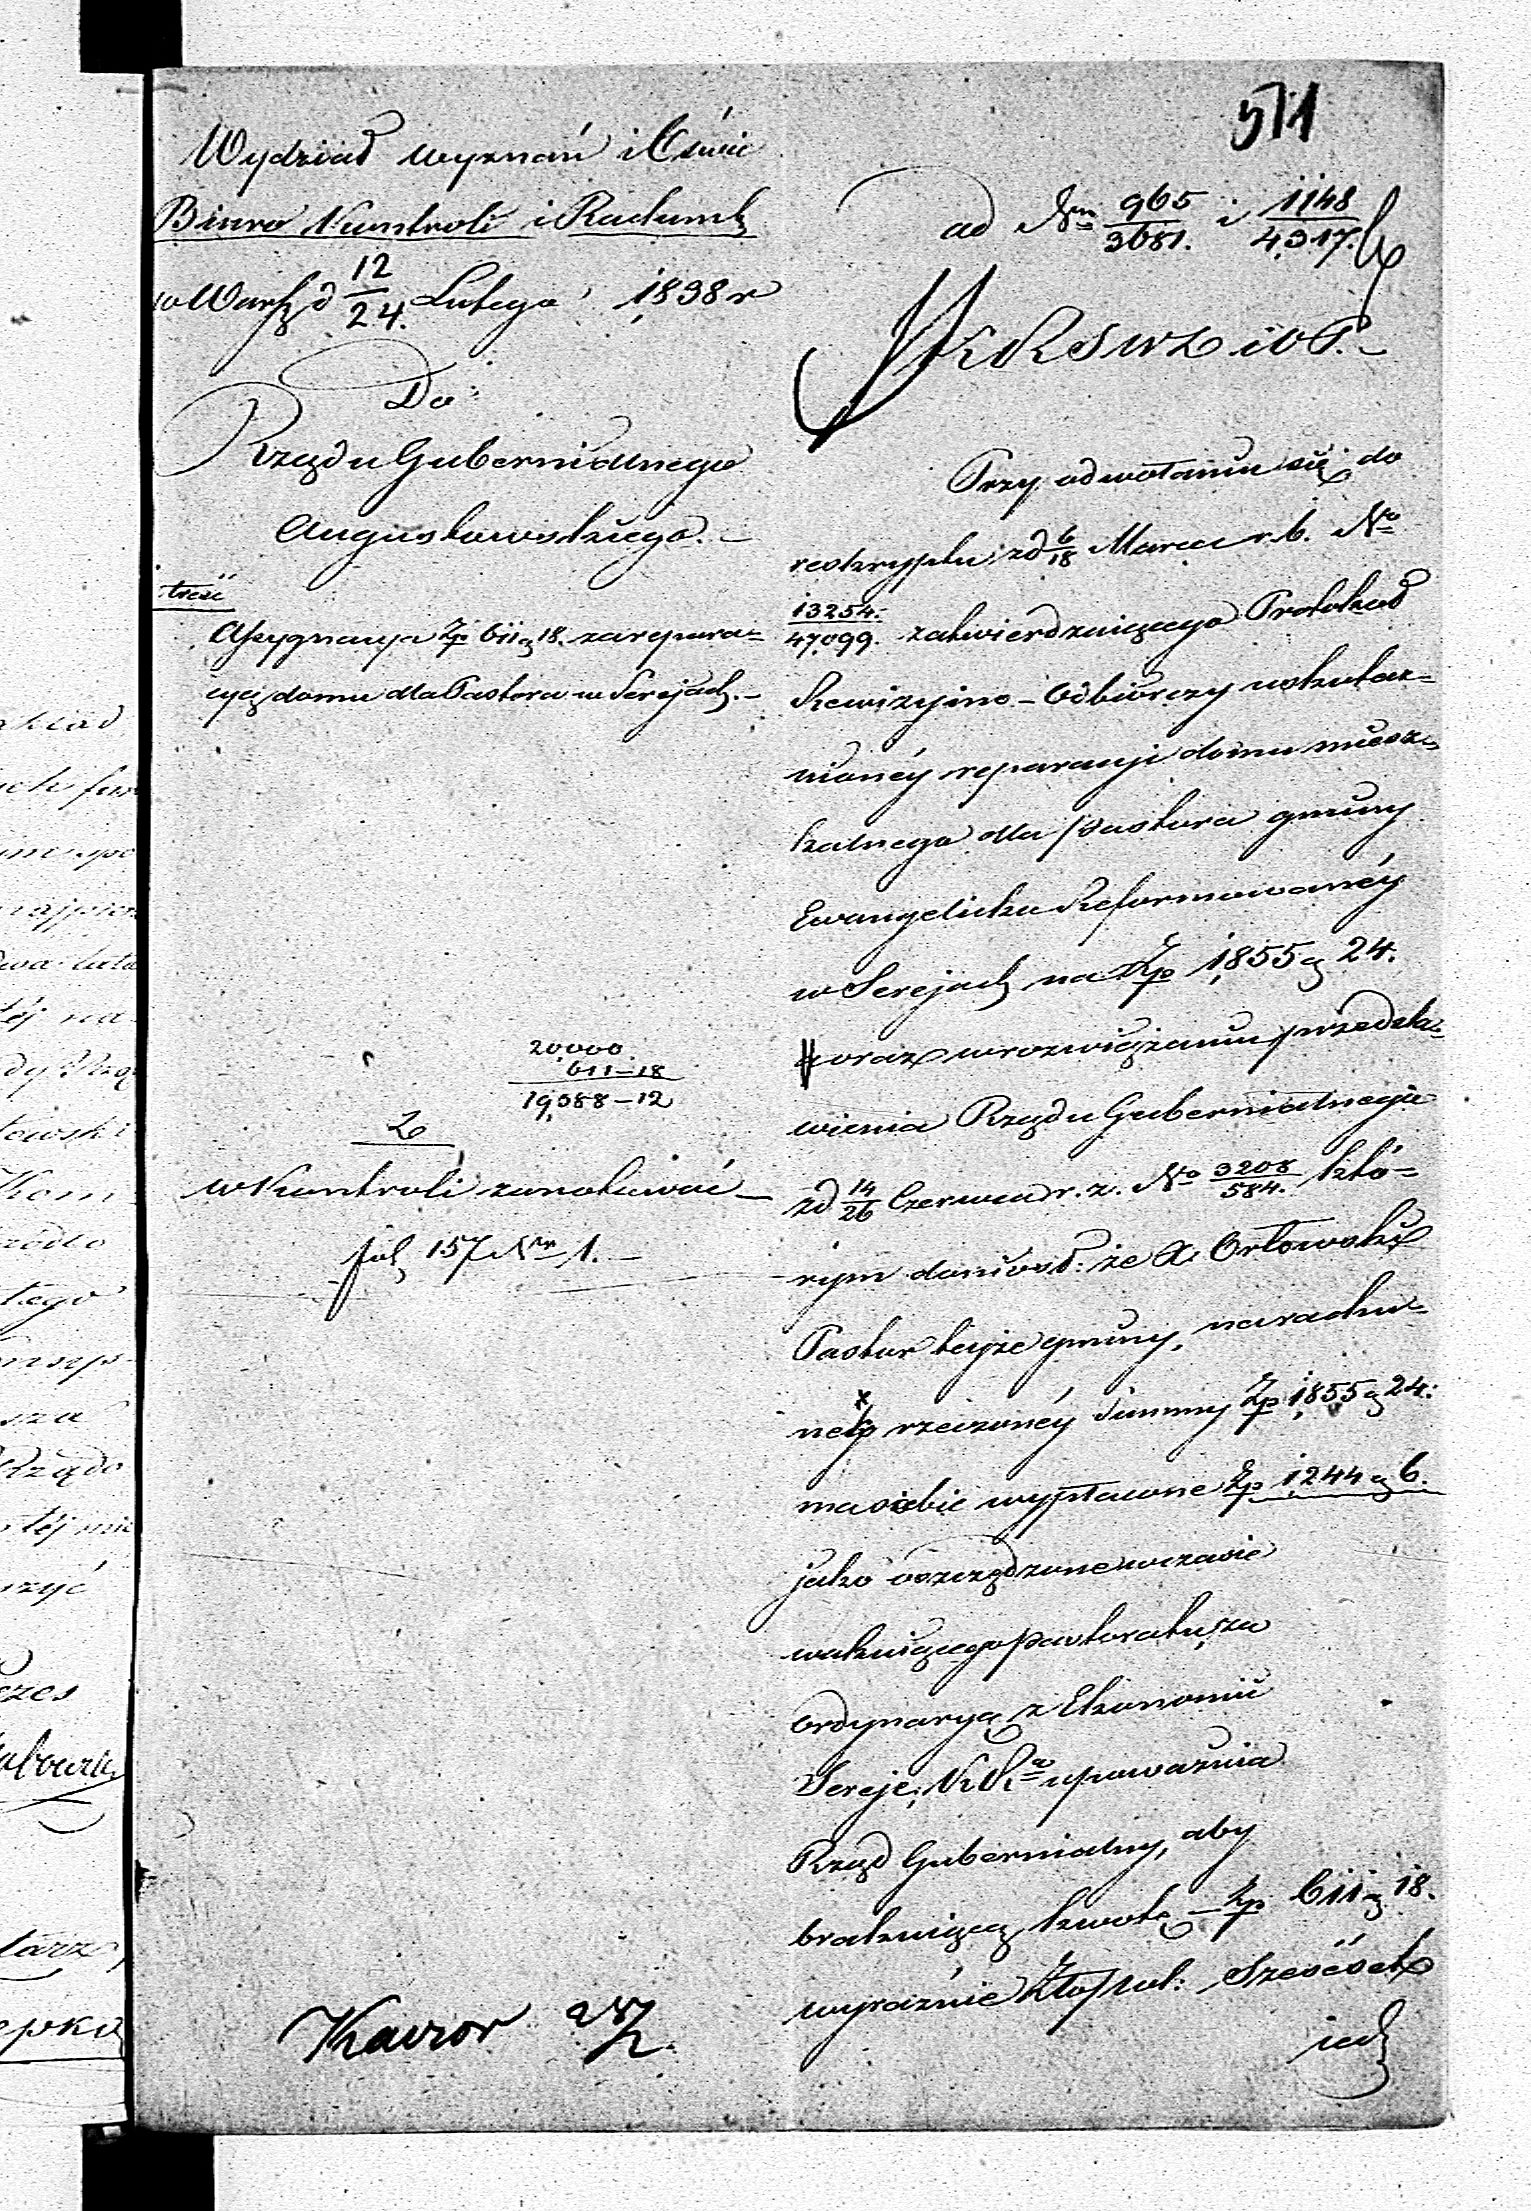 571
Wydział wyznań i Oświec
Biuro Kontroli i Rachunk
w Warsz d 12/24. Lutego 1838 r
Do
Rządu Gubernialnego
Augustowskiego.
treść
Assygnacya Zp 611 g 18. za repara=
cyę domu dla Pastora w Serejach.
20,000.
611-18
19,388-12
w Kontroli zanotować
fol 157 Nr 1.
Kawior
ad Nr 965/3681. i 1148/4,317.
KRSWD i OP.
Przy odwołaniu się do
reskryptu z d 6/18 Marca r. b. No
13254./47,099. zatwierdzaiącego Protokół
Rewizyino-Odbiorczy uskutecz=
nionéy reparacyi domu miesz=
kalnego dla Pastora gminy
Ewangelicko Reformowanéy
w Serejach na Zp 1,855 g 24.
oraz w rozwiązaniu przedsta=
wienia Rządu Gubernialnego
z d 14/26 Czerwca r. z. No 3208/584. któ=
rym doniósł: że X. Orłowski
Pastor teyże gminy, na rachu=
nek rzeczonéy Summy Zp 1,855 g 24.
ma sobie wypłacone Zp 1,244 g 6.
jako oszczędzone w czasie
wakuiącego pastoratu, za
Ordynaryą z Ekonomii
Sereje; KRa upoważnia
Rząd Gubernialny, aby
brakuiącą kwotę Zp 611 g 18.
wyraźnie Złop pol: Sześćset